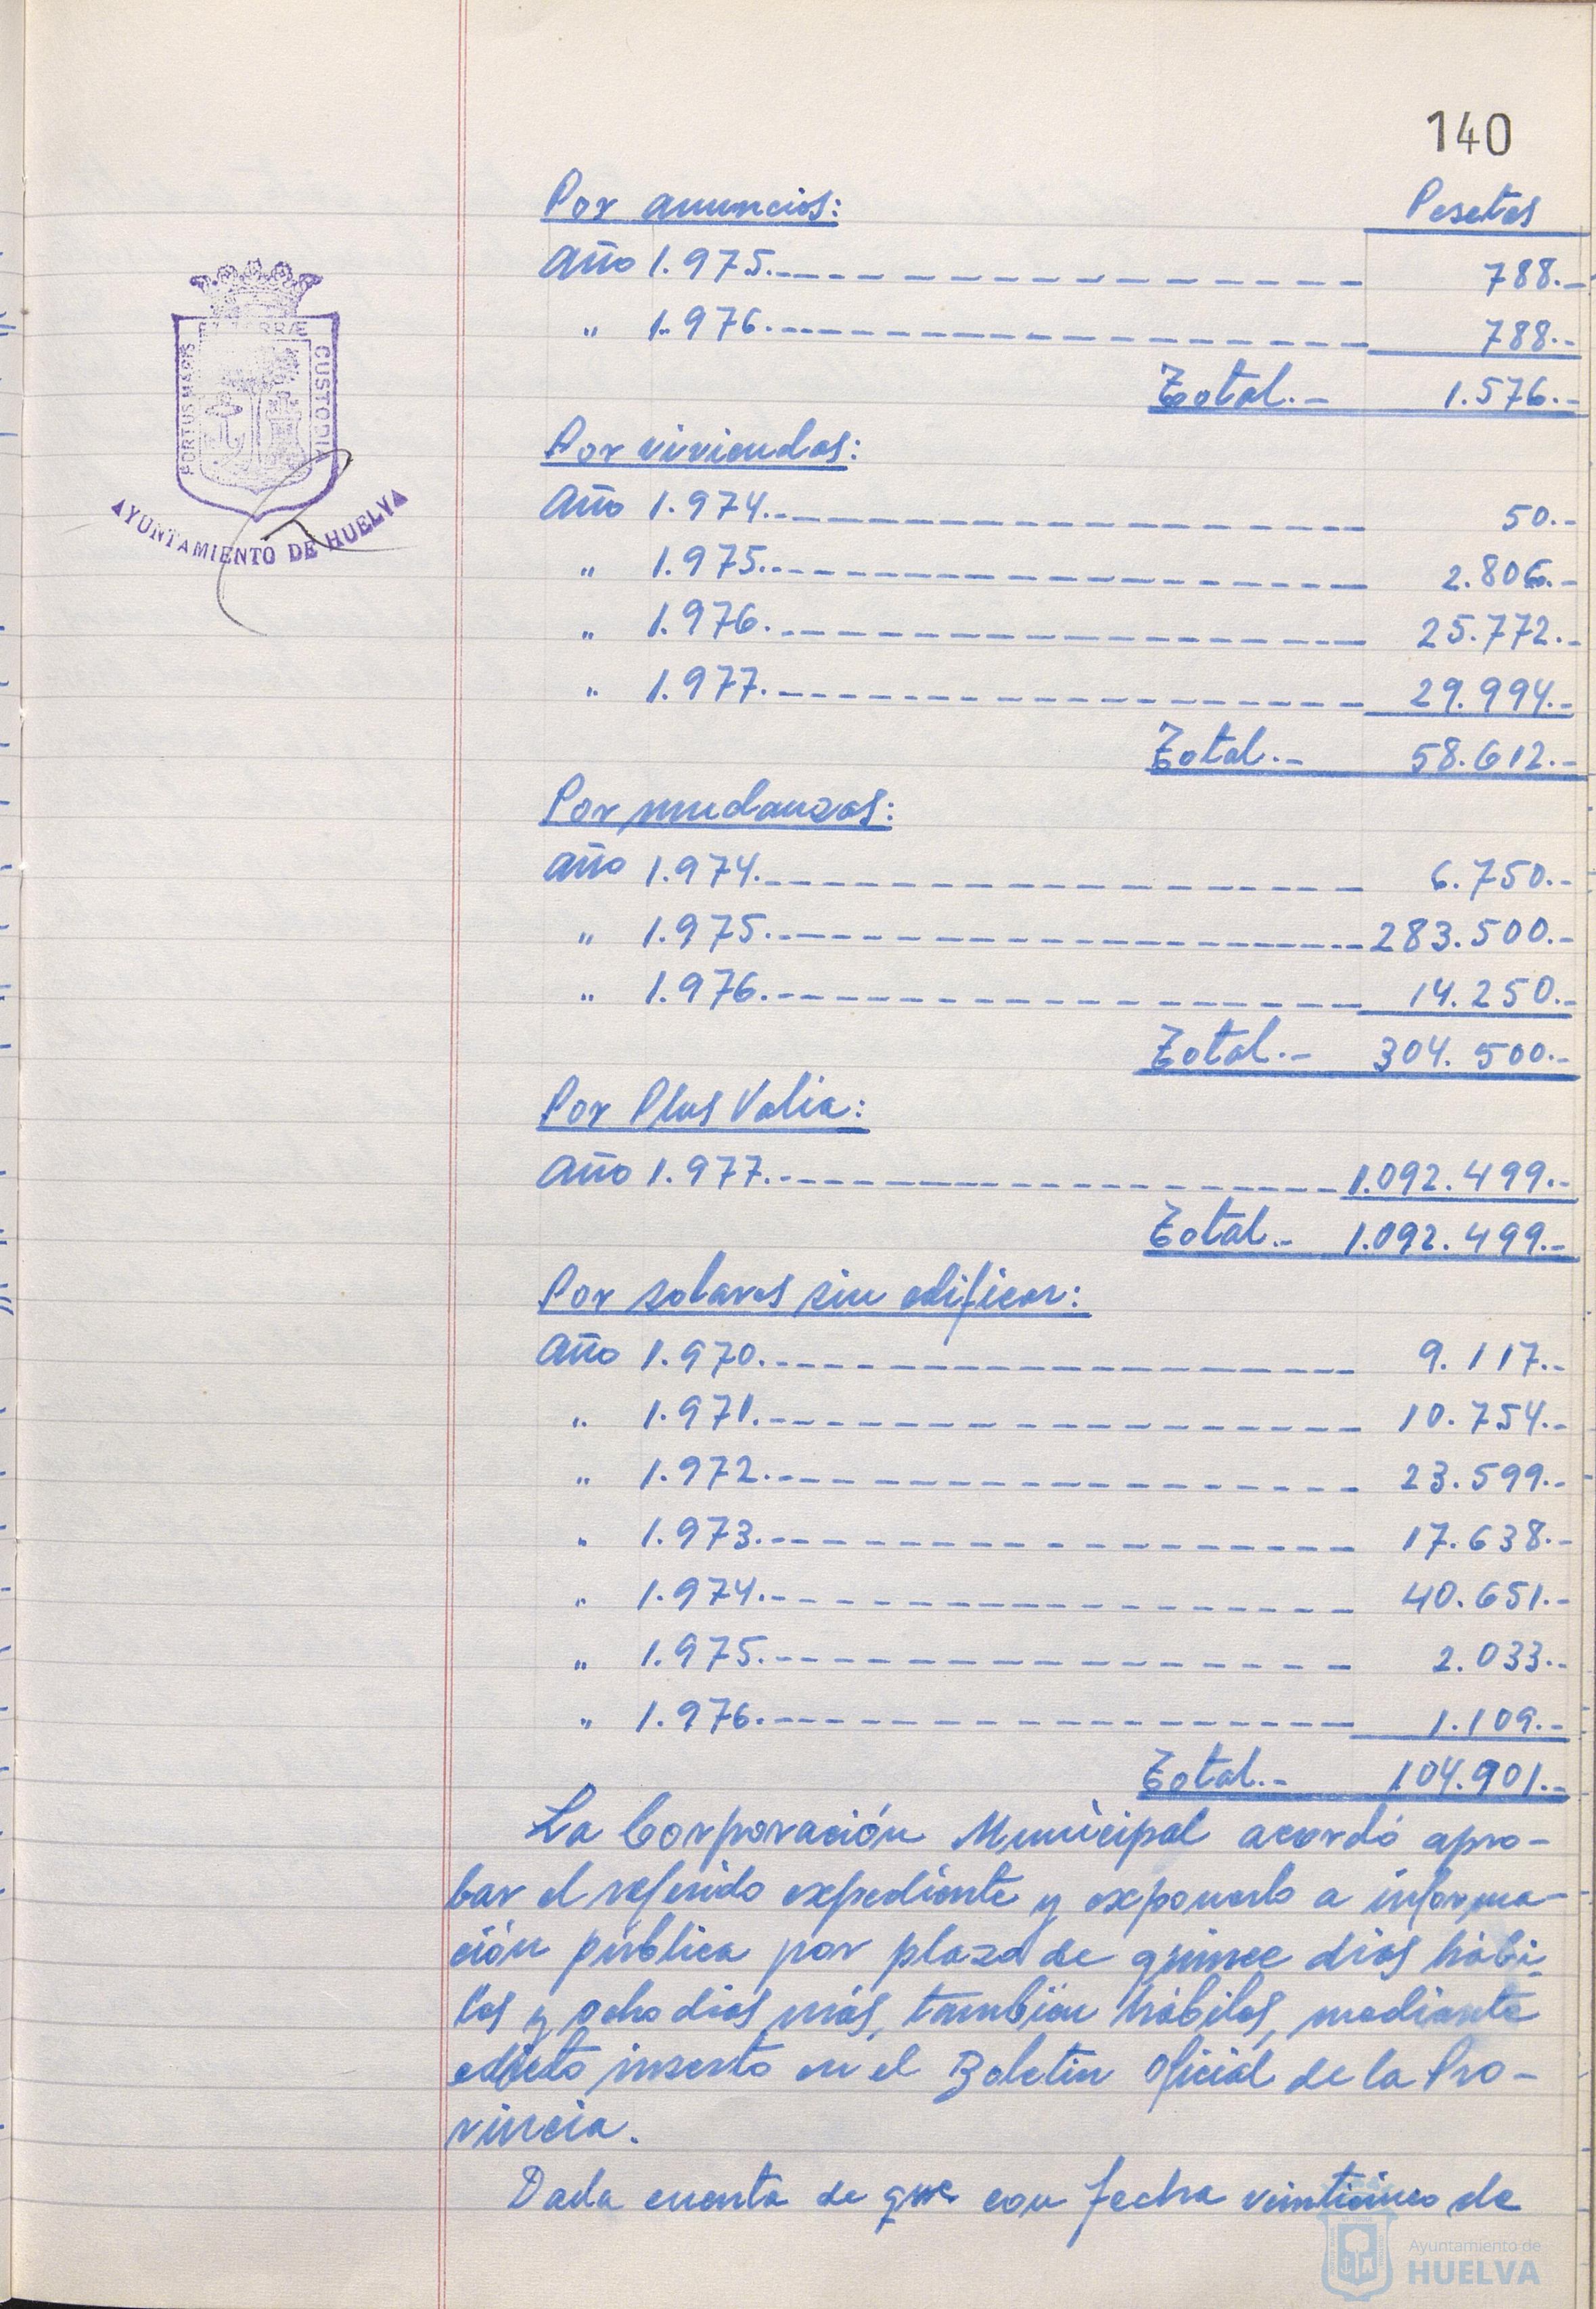 140
Por anuncios: Pesetas
Año 1.975.- 788.-
" 1.976.- 788.-
Total.- 1.576.-
Por viviendas:
Año 1.974.- 50.-
" 1.975.- 2.806.-
" 1.976.- 25.772.-
" 1.977.- 29.994.-
Total.- 58.612.-
Por mudanzas:
Año 1.974.- 6.750.-
" 1.975.- 283.500.-
" 1.976.- 14.250.-
Total.- 304.500.-
Por Plus Valia:
Año 1.977.- 1.092.499.-
Total.- 1.092.499.-
Por solares sin edificar:
Año 1.970.- 9.117.-
" 1.971.- 10.754.-
" 1.972.- 23.599.-
" 1.973.- 17.638.-
" 1.974.- 40.651.-
" 1.975.- 2.033.-
" 1.976.- 1.109.-
Total.- 104.901.-
La Corporación Municipal acordó apro-
bar el referido expediente y exponerlo a informa-
ción pública por plazo de quince días hábi-
les y ocho días más, también hábiles, mediante
edicto inserto en el Boletín Oficial de la Pro-
vincia.
Dada cuenta de que con fecha veinticinco de
PORTUS MARIS
ET TERRÆ
CUSTODIA
AYUNTAMIENTO DE HUELVA
Ayuntamiento de
HUELVA